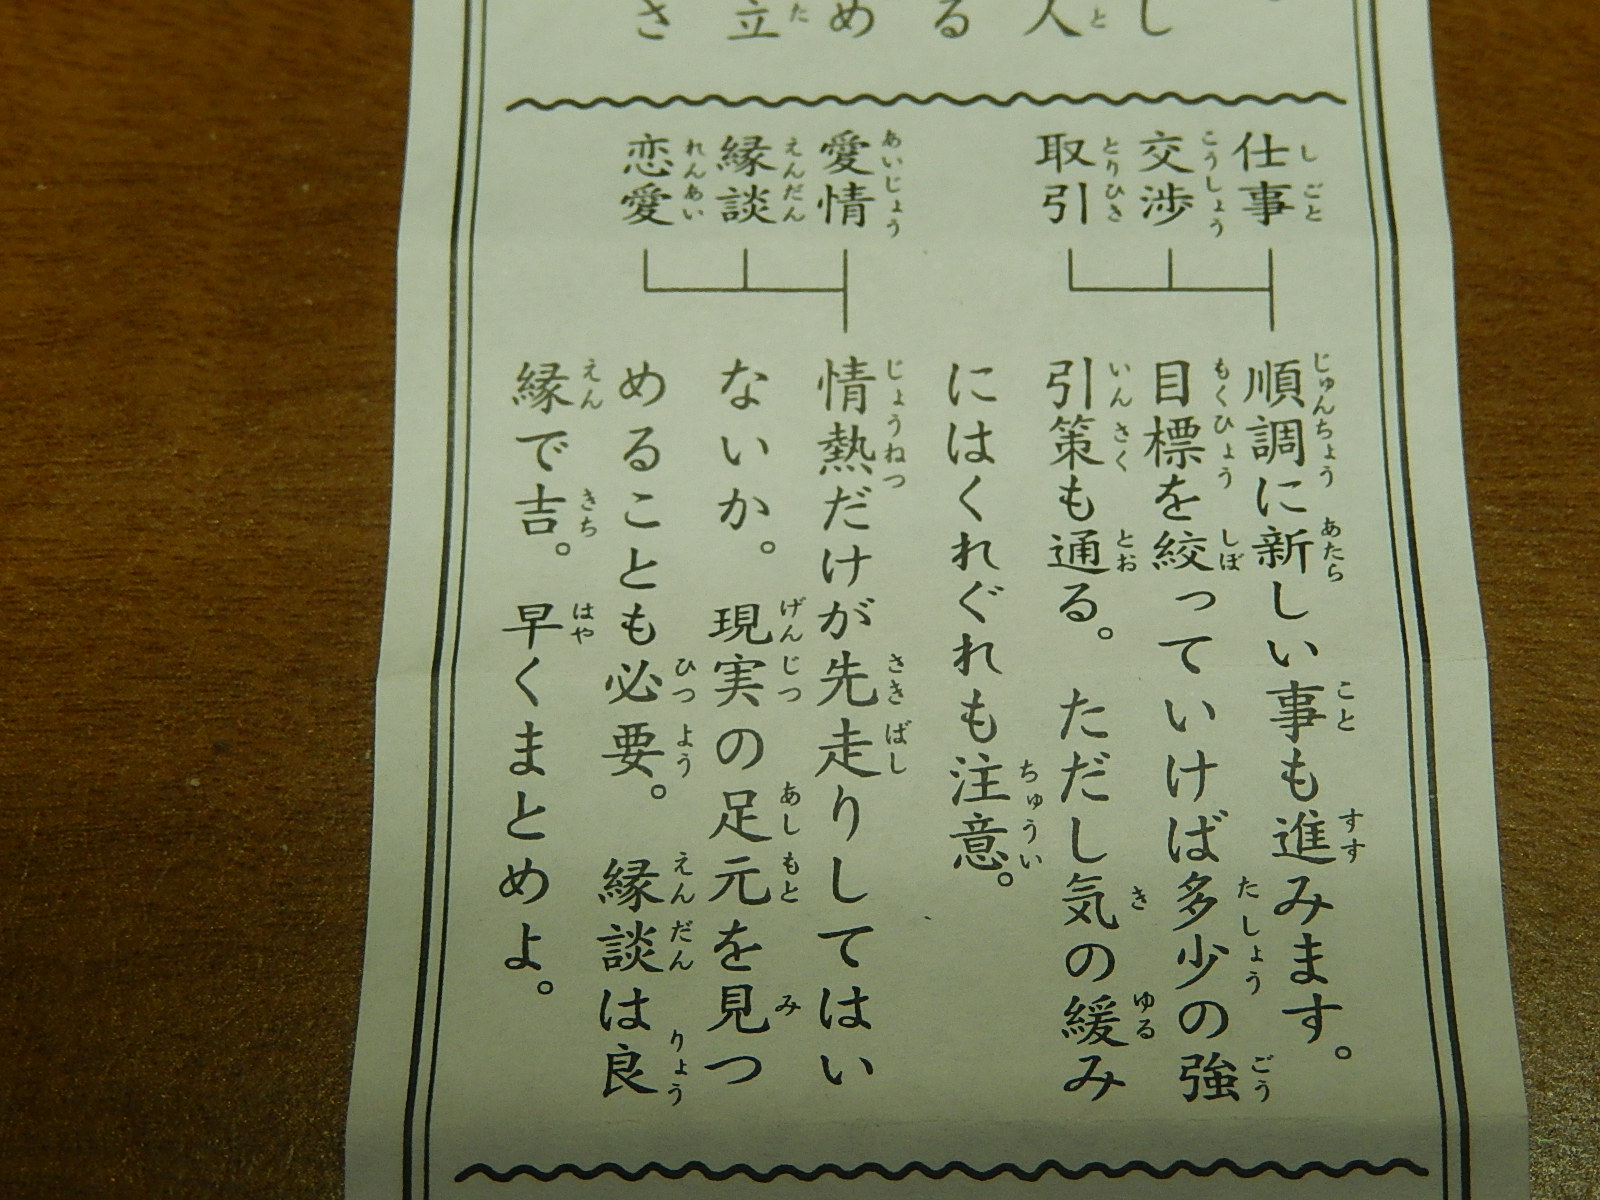 し
人
る
め
立
さ
仕事
交渉
取引
順調に新しい事も進みます。
目標を絞っていけば多少の強
引策も通る。ただし気の緩み
にはくれぐれも注意。
愛情
縁談
恋愛
情熱だけが先走りしてはい
ないか。現実の足元を見つ
めることも必要。縁談は良
縁で吉。早くまとめよ。